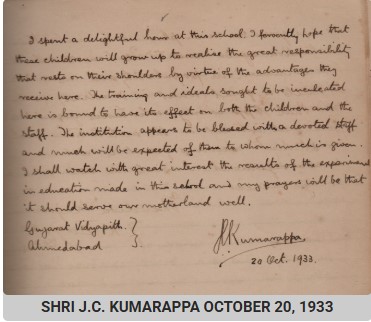 I spent a delightful hour at this school. I favently hope that
these children will grow up to realise the great responsibility
that rests on their shoulders by virtue of the advantages they
receive here. The training and ideals sought to be inculcated
here is bound to have its effect on both the children and the
staff. The institution appears to be blessed with a devoted staff
and much will be expected of them to whom much is given.
I shall watch with great interest the results of the experiment
in education made in this school and my prayers will be that
it should serve our motherland well.
Gujarat Vidyapith
Ahmedabad
JCKumarappa
20 Oct. 1933.
SHRI J.C. KUMARAPPA OCTOBER 20, 1933